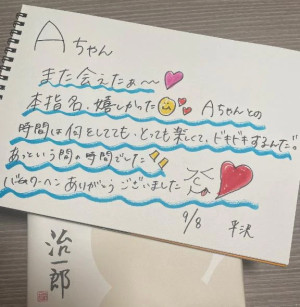 Aちゃん
また会えたぁ〜
本指名、嬉しかった Aちゃんとの
時間は何をしてても、とっても楽しくて、ドキドキするんだ。
あっという間の時間でした
バームクーヘン ありがとうございました
9/8 平沢
治一郎